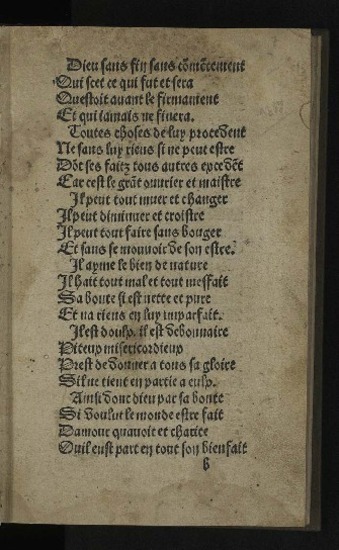 Dieu sans fin sans cõmẽcement
Qui scet ce qui fut et sera
Questoit auant le firmament
Et qui iamais ne finera.
Toutes choses de luy procedent
Ne sans luy riens si ne peut estre
Dõt ses faitz tous autres excedẽt
Car cest le grãt ouurier et maistre
Il peut tout muer et changer
Il peut diminuer et croistre
Il peut tout faire sans bouger
Et sans se mouuoir de son estre.
Il ayme le bien de nature
Il hait tout mal et tout meffait
Sa bonte si est nette et pure
Et na riens en luy imparfait.
Il est doulx. il est debonnaire
Piteux misericordieux
Prest de donner a tous sa gloire
Sil ne tient en partie a eulx.
Ainsi donc dieu par sa bonte
Si voulut le monde estre fait
Damour quauoit et charite
Quil eust part en tout son bienfait
b